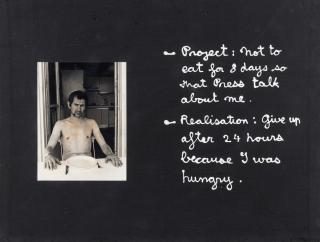 - Project : Not to
eat for 8 days so
that Press talk
about me.
- Realisation : Give up
after 24 hours
because I was
hungry.